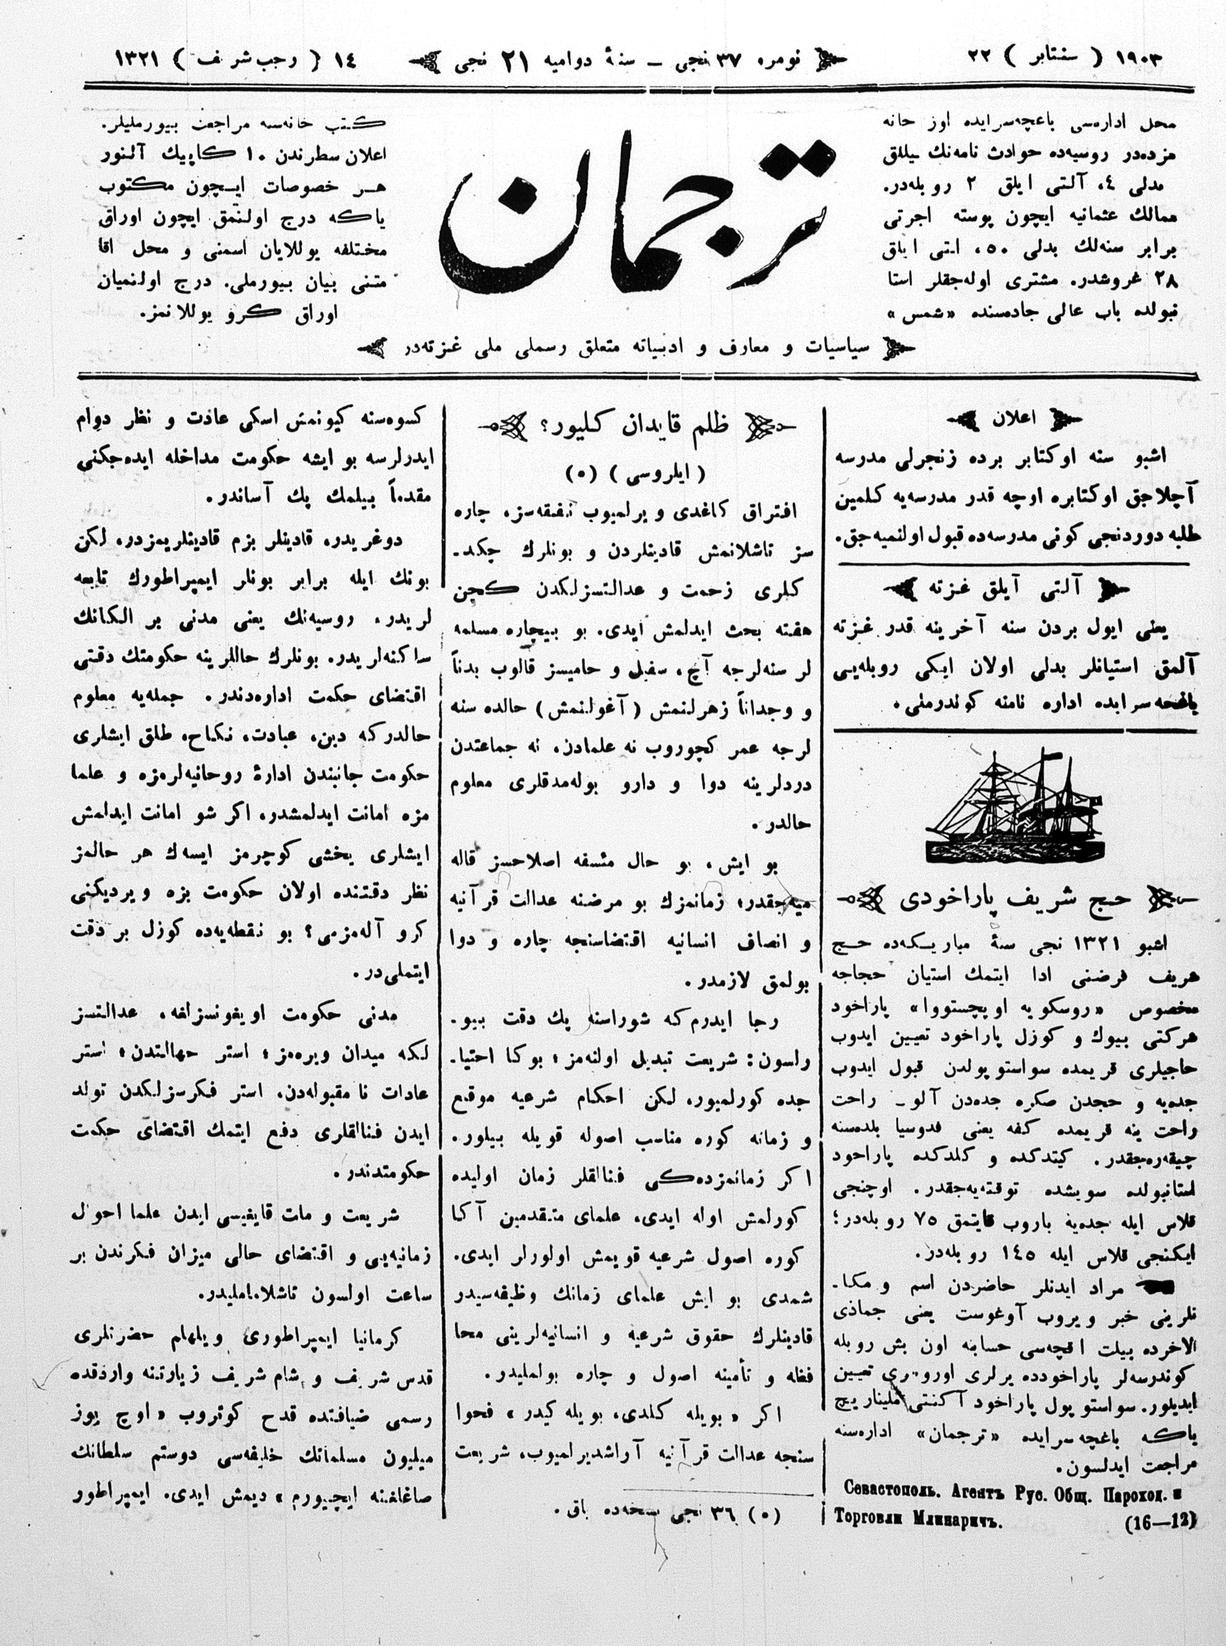 ١٩٠٣ ( سنتابر ) ٢٢
نومره ٣٧ نجی ــ سنۀ دوامیه 21 نجی
١٤ ( رجب شریف ) ١٣٢١
محل اداره‌سی باغچه‌سرایده اوز خانه
مزده‌در روسیه‌ده حوادث نامه‌نك ییللق
بدلی ٤، آلتی ایلق ٢ روبله‌در.
ممالك عثمانیه ایچون پوسته اجرتی
برابر سنه‌لك بدلی ٥٠، التی ایلق
٢٨ غروشدر. مشتری اوله‌جقلر استا
نبولده باب عالی جاده‌سنده «شمس»
ترجمان
كتب خانه‌سه مراجعت بیورملیلر.
اعلان سطرندن ١٠ كاپیك آلنور
هر خصوصات ایچون مكتوب
یا كه درج اولنمق ایچون اوراق
مختلفه یوللایان اسمنی و محل اقا
متنی بیان بیورملی. درج اولنمیان
اوراق كرو یوللانمز.
سیاسیات و معارف و ادبیاته متعلق رسملی ملی غزته‌در
اعلان
اشبو سنه اوكتابر برده زنجرلی مدرسه
آچلاجق اوكتابره اوچه قدر مدرسه‌یه كلمین
طلبه دوردنجی كونی مدرسه‌ده قبول اولنمیه‌جق.
آلتی آیلق غزته
یعنی ایول بردن سنه آخرینه قدر غزته
آلمق استیانلر بدلی اولان ایكی روبله‌یی
باغچه‌سرایده اداره نامنه كوندرملی.
حج شریف پاراخودی
اشبو ١٣٢١ نجی سنۀ مباریكه‌ده حج
شریف فرضنی ادا ایتمك استیان حجاجه
مخصوص «روسكویه اوبچستووا» پاراخود
شركتی بیوك و كوزل پاراخود تعیین ایدوب
حاجیلری قریمده سواستوپولدن قبول ایدوب
جدیه و حجدن صكره جده‌دن آلو۔ راحت
راحت ینه قریمده كفه یعنی فدوسیا بلده‌سنه
چیقه‌ره‌جقدر. كیتدكده و كلدكده پاراخود
استانبولده سویشده توقته‌یه‌جقدر. اوچنجی
قلاس ایله جدیه باروب قایتمق ٧٥ روبله‌در؛
ایكنجی قلاس ایله ١٤٥ روبله‌در.
مراد ایدنلر حاضردن اسم و مكا۔
نلرینی خبر ویروب آوغوست یعنی جماذی
الاخرده بیلت اقچه‌سی حسابنه اون بش روبله
كوندرسه‌لر پاراخودده یرلری تعیین
ایدیلور. سواستوپول پاراخود آكنتی ملیناریچ
یا كه باغچه‌سرایده «ترجمان» اداره‌سنه
مراجعت ایدلسون.
Севастополь. Агентъ Рус. Общ. Пароход. и
Торговли Млинаричъ. (16—12)
ظلم قایدان كلیور؟
( ایلروسی ) (٥)
افتراق كاغدی ویرلمیوب نفقه‌سز، چاره
سز تاشلانمش قادینلردن و بونلرك چكد۔
كلری زحمت و عدالتسزلكدن كچن
هفته بحث ایدلمش ایدی. بو بیچاره مسلمه
لر سنه‌لرجه آچ، سفیل و حامیسز قالوب بدناً
و وجداناً زهرلنمش (آغولنمش) حالده سنه
لرجه عمر كچوروب نه علمادن، نه جماعتدن
دردلرینه دوا و دارو بوله‌مدقلری معلوم
حالدر.
بو ایش، بو حال مئسفه اصلاحسز قاله
میه‌جقدر؛ زمانمزك بو مرضنه عدالت قرآنیه
و انصاف انسانیه اقتضاسنجه چاره و دوا
بولمق لازمدر.
رجا ایدرم كه شوراسنه پك دقت بیو۔
رلسون: شریعت تبدیل اولنه‌مز؛ بوكا احتیا۔
جده كورلمیور، لكن احكام شرعیه موقع
و زمانه كوره مناسب اصوله قویله بیلور.
اكر زمانمزده‌كی فنالقلر زمان اولیده
كورلمش اوله ایدی، علمای متقدمین آكا
كوره اصول شرعیه قویمش اولورلر ایدی.
شمدی بو ایش علمای زمانك وظیفه‌سیدر
قادینلرك حقوق شرعیه و انسانیه‌لرینی محا
فظه و تأمینه اصول و چاره بولملیدر.
اكر «بویله كلدی، بویله كیدر» فحوا
سنجه عدالت قرآنیه آراشدیرلمیوب، شریعت
(٥) ٣٦ نجی نسخه‌ده باق.
كسوه‌سنه كیونمش اسكی عادت و نظر دوام
ایدرلرسه بو ایشه حكومت مداخله ایده‌جكنی
مقدماً بیلمك پك آساندر.
دوغریدر، قادینلر بزم قادینلریمزدر، لكن
بونك ایله برابر بونلر ایمپراطورك تابعه
لریدر، روسیه‌نك یعنی مدنی بر الكانك
ساكنه‌لریدر. بونلرك حاللرینه حكومتك دقتی
اقتضای حكمت اداره‌دندر. جمله‌یه معلوم
حالدر كه دین، عبادت، نكاح، طلق ایشلری
حكومت جانبندن ادارۀ روحانیه‌لرمزه و علما
مزه امانت ایدلمشدر، اكر شو امانت ایدلمش
ایشلری یخشی كوچرمز ایسه‌ك هر حالمز
نظر دقتنده اولان حكومت بزه ویردیكنی
كرو آله‌مزمی؟ بو نقطه‌یه‌ده كوزل بر دقت
ایتملی‌در.
مدنی حكومت اویغونسزلغه، عدالتسز
لكه میدان ویره‌مز؛ استر جهالتدن؛ استر
عادات نامقبوله‌دن، استر فكرسزلكدن تولد
ایدن فنالقلری دفع ایتمك اقتضای حكمت
حكومتدندر.
شریعت و ملت قایغیسی ایدن علما احوال
زمانیه‌یی و اقتضای حالی میزان فكرندن بر
ساعت اولسون تاشلاماملیدر.
كرمانیا ایمپراطوری ویلهام حضرتلری
قدس شریف و شام شریف زیارتنه واردقده
رسمی ضیافتده قدح كوتروب «اوچ یوز
میلیون مسلمانك خلیفه‌سی دوستم سلطانك
صاغلغنه ایچیورم» دیمش ایدی. ایمپراطور